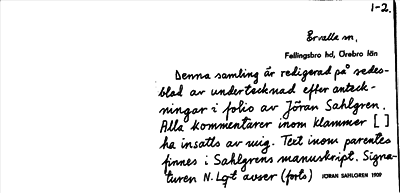 1-2.
Ervalla sn,
Fellingsbro hd, Örebro län
Denna samling är redigerad på sedes-
blad av undertecknad efter anteck-
ningar i folio av Jöran Sahlgren.
Alla kommentarer inom klammer [ ]
ha insatts av mig. Text inom parentes
finnes i Sahlgrens manuskript. Signa-
turen N. Lgt avser (forts) JÖRAN SAHLGREN 1909